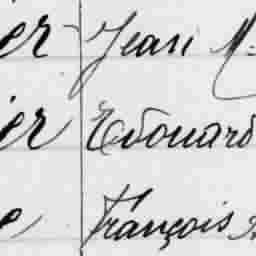 er Jean M.
er Edouard
e François